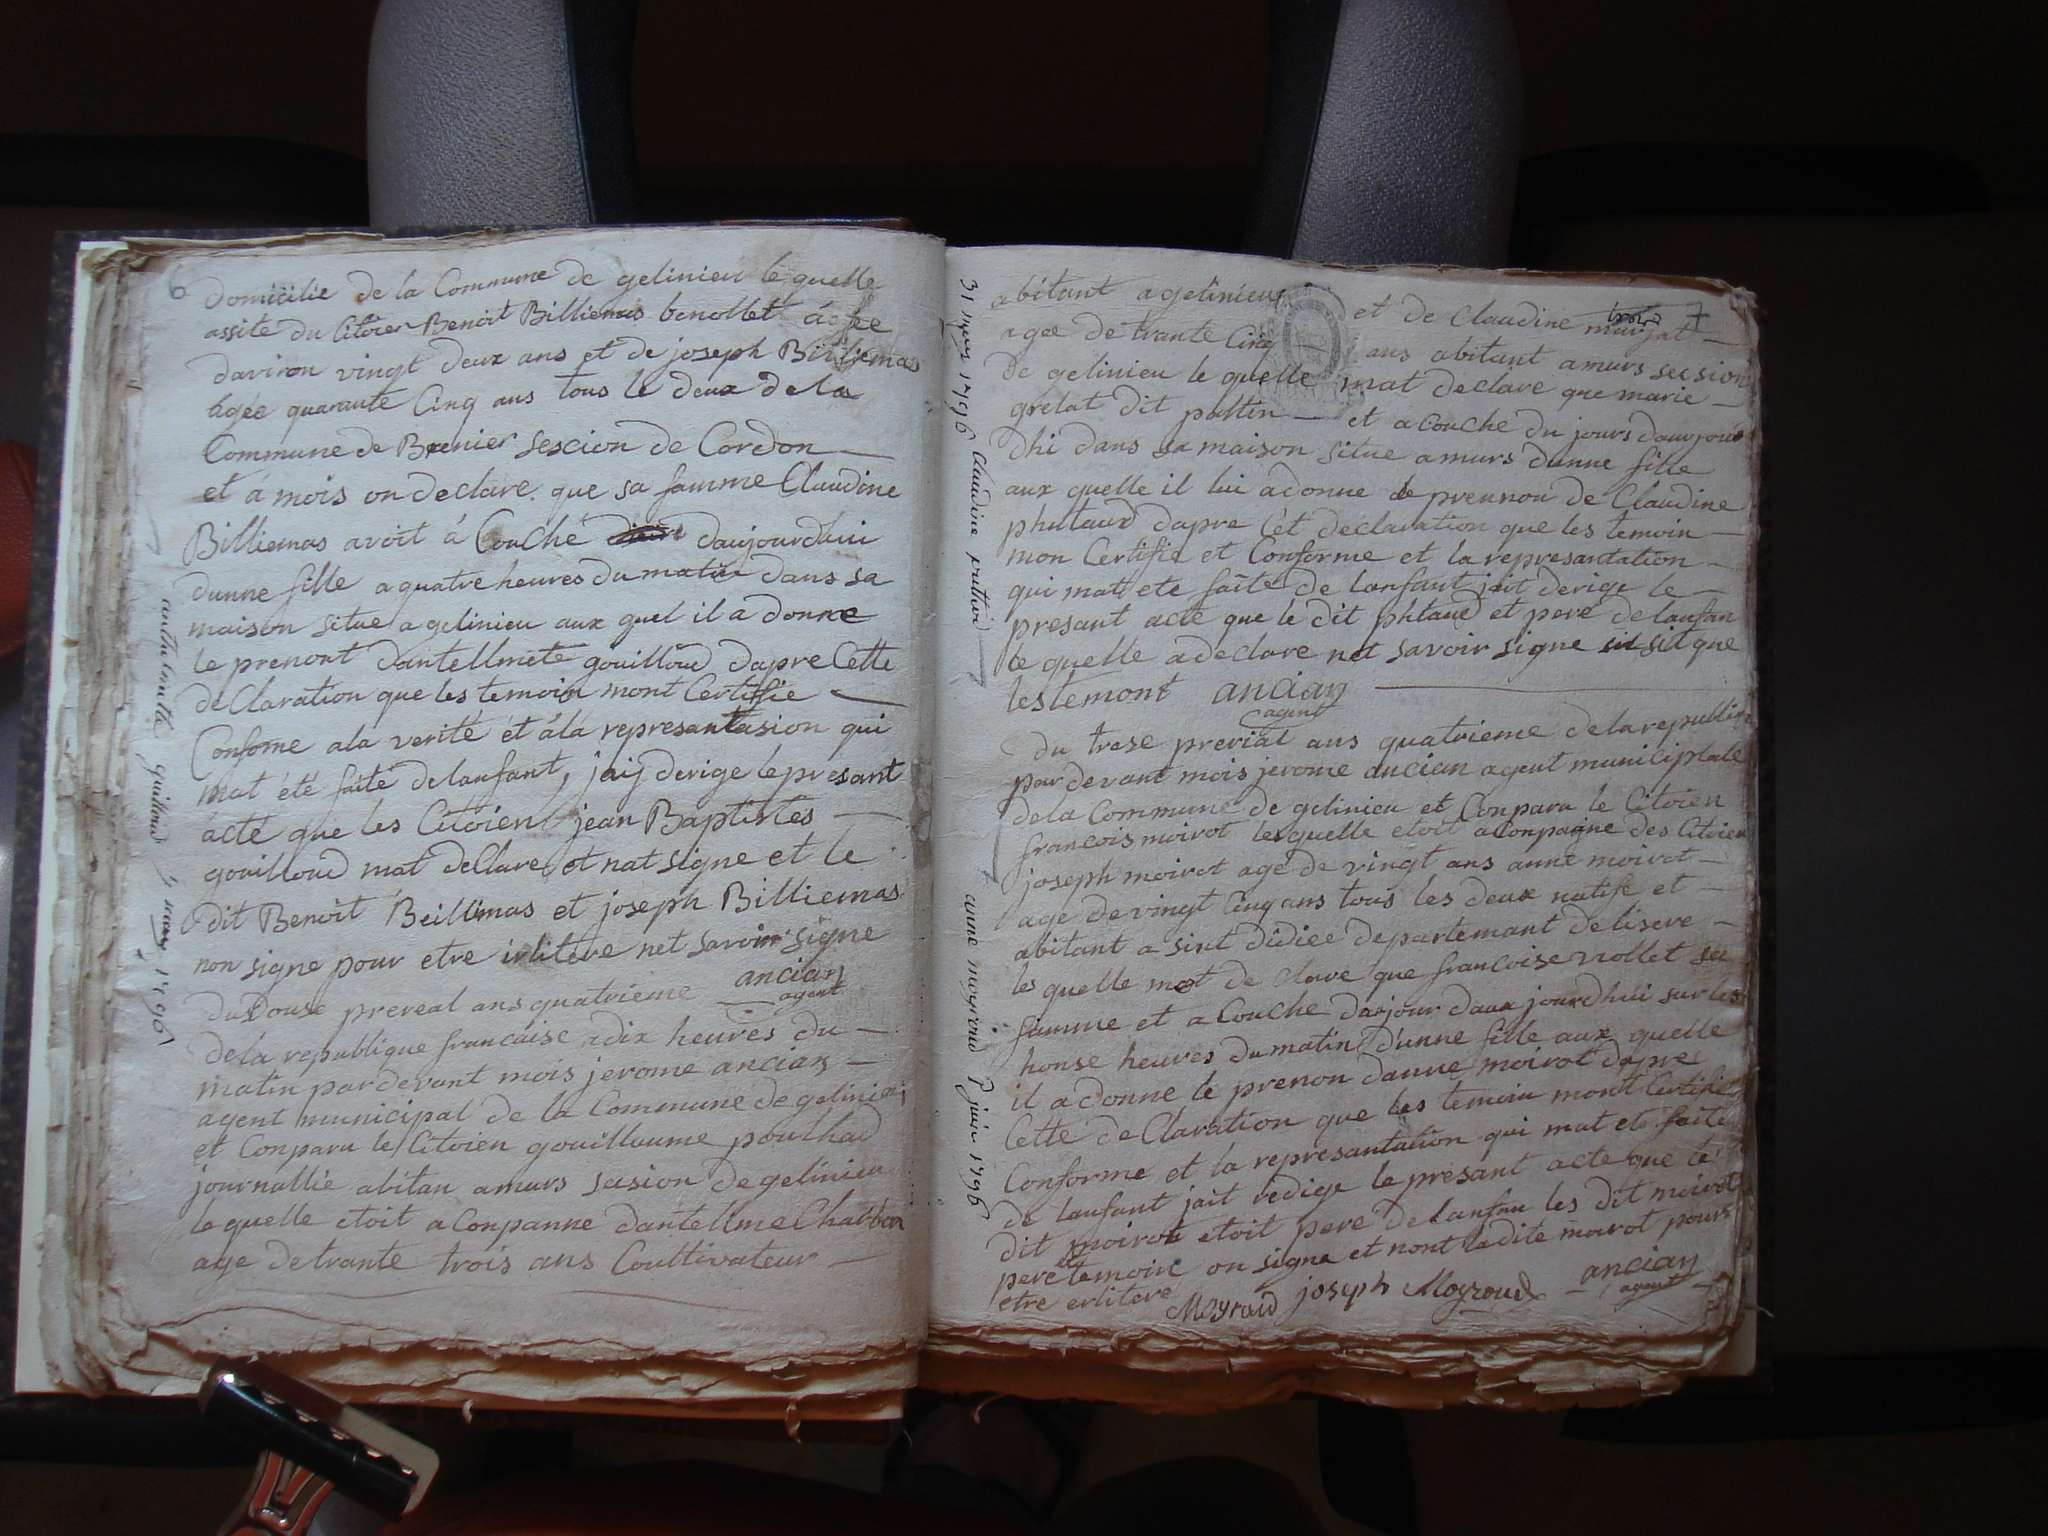 6
domicilie de la Commune de gelinieu le quelle
assite du Citoien Benoit Billiemas benollet agee
daviron vingt deux ans et de joseph Billiemas
agée quarante Cinq ans tous le deux de la
Commune de Brenier sescion de Cordon
et á mois on declare que sa famme Claudine
Billiemas avoit á Couché daujourdhui
dunne fille a quatre heures du matin dans sa
maison situe a gelinieu aux quel il a donne
le prenont dantellmete gouilloud dapre Cette
de Claration que les temoin mont Certifie
Confome ala verité et álá represantasion qui
mat été faite delanfant, jaij derige le presant
acte que les Citoien jean Baptistes
gouilloud mat deClare et nat signe et le
dit Benoit Beillimas et joseph Billiemas
non signe pour etre irlitere net savoir signe
ancian
agent
du Douse prereal ans quatrieme
dela republique francaise a dix heures du
matin pardevant mois jerome ancian
agent municipal de la Commune de gelinieu
et Conparu le Citoien gouillaume poulhad
journallié abitan a murs sasion de gelinieu
le quelle etoit a Conpanne dantellme Chatbon
age de trante trois ans Coultivateur
guilloud 1796
7
abitant a gelinieu et de Claudine maujat
agee de trante Cinq ans abitant a murs secsion
de gelinieu le quelle mat declare que marie
grelat dit pattin et a Couche du jours daujour
dhi dans sa maison situe a murs dunne fille
aux quelle il lui a donne le prennon de Claudine
phutaud dapre Cet declaration que les temoin
mon Certifie et Conforme et la represantation
qui mat ete faite de lanfant jait derige le
presant acte que le dit phtaud et pere de lanfan
le quelle a declare net savoir signe sit que
les temont ancian
agent
31 1796 Claudine
du trese prerial ans quatrieme dela republi
par devant mois jerome ancian agent municiplale
dela Commune de gelinieu et Conparu le Citoien
francois moirot les quelle etoit a Conpagne des Citoien
joseph moirot age de vingt ans anne moirot
age de vingt Cinq ans tous les deux natife et
abitant a sint didiee departemant de lisere
les quelle mot de clare que francoise viollet sa
famme et a Couche dujour daux jourdhui sur les
honse heures du matin d'unne fille aux quelle
il a donne le prenon danne moirot dapre
Cette de Claration que les temoin mont Certifie
Conforme et la represantation qui mat ete faite
de lanfant jait redige le presant acte que le
dit moirot etoit pere de lanfan les dit moirot
pere et temoin on signe et nont ladite moirot pours
etre erlitere Moyroud joseph Moyroud ancian
agent
anne moyroud 1 juin 1796